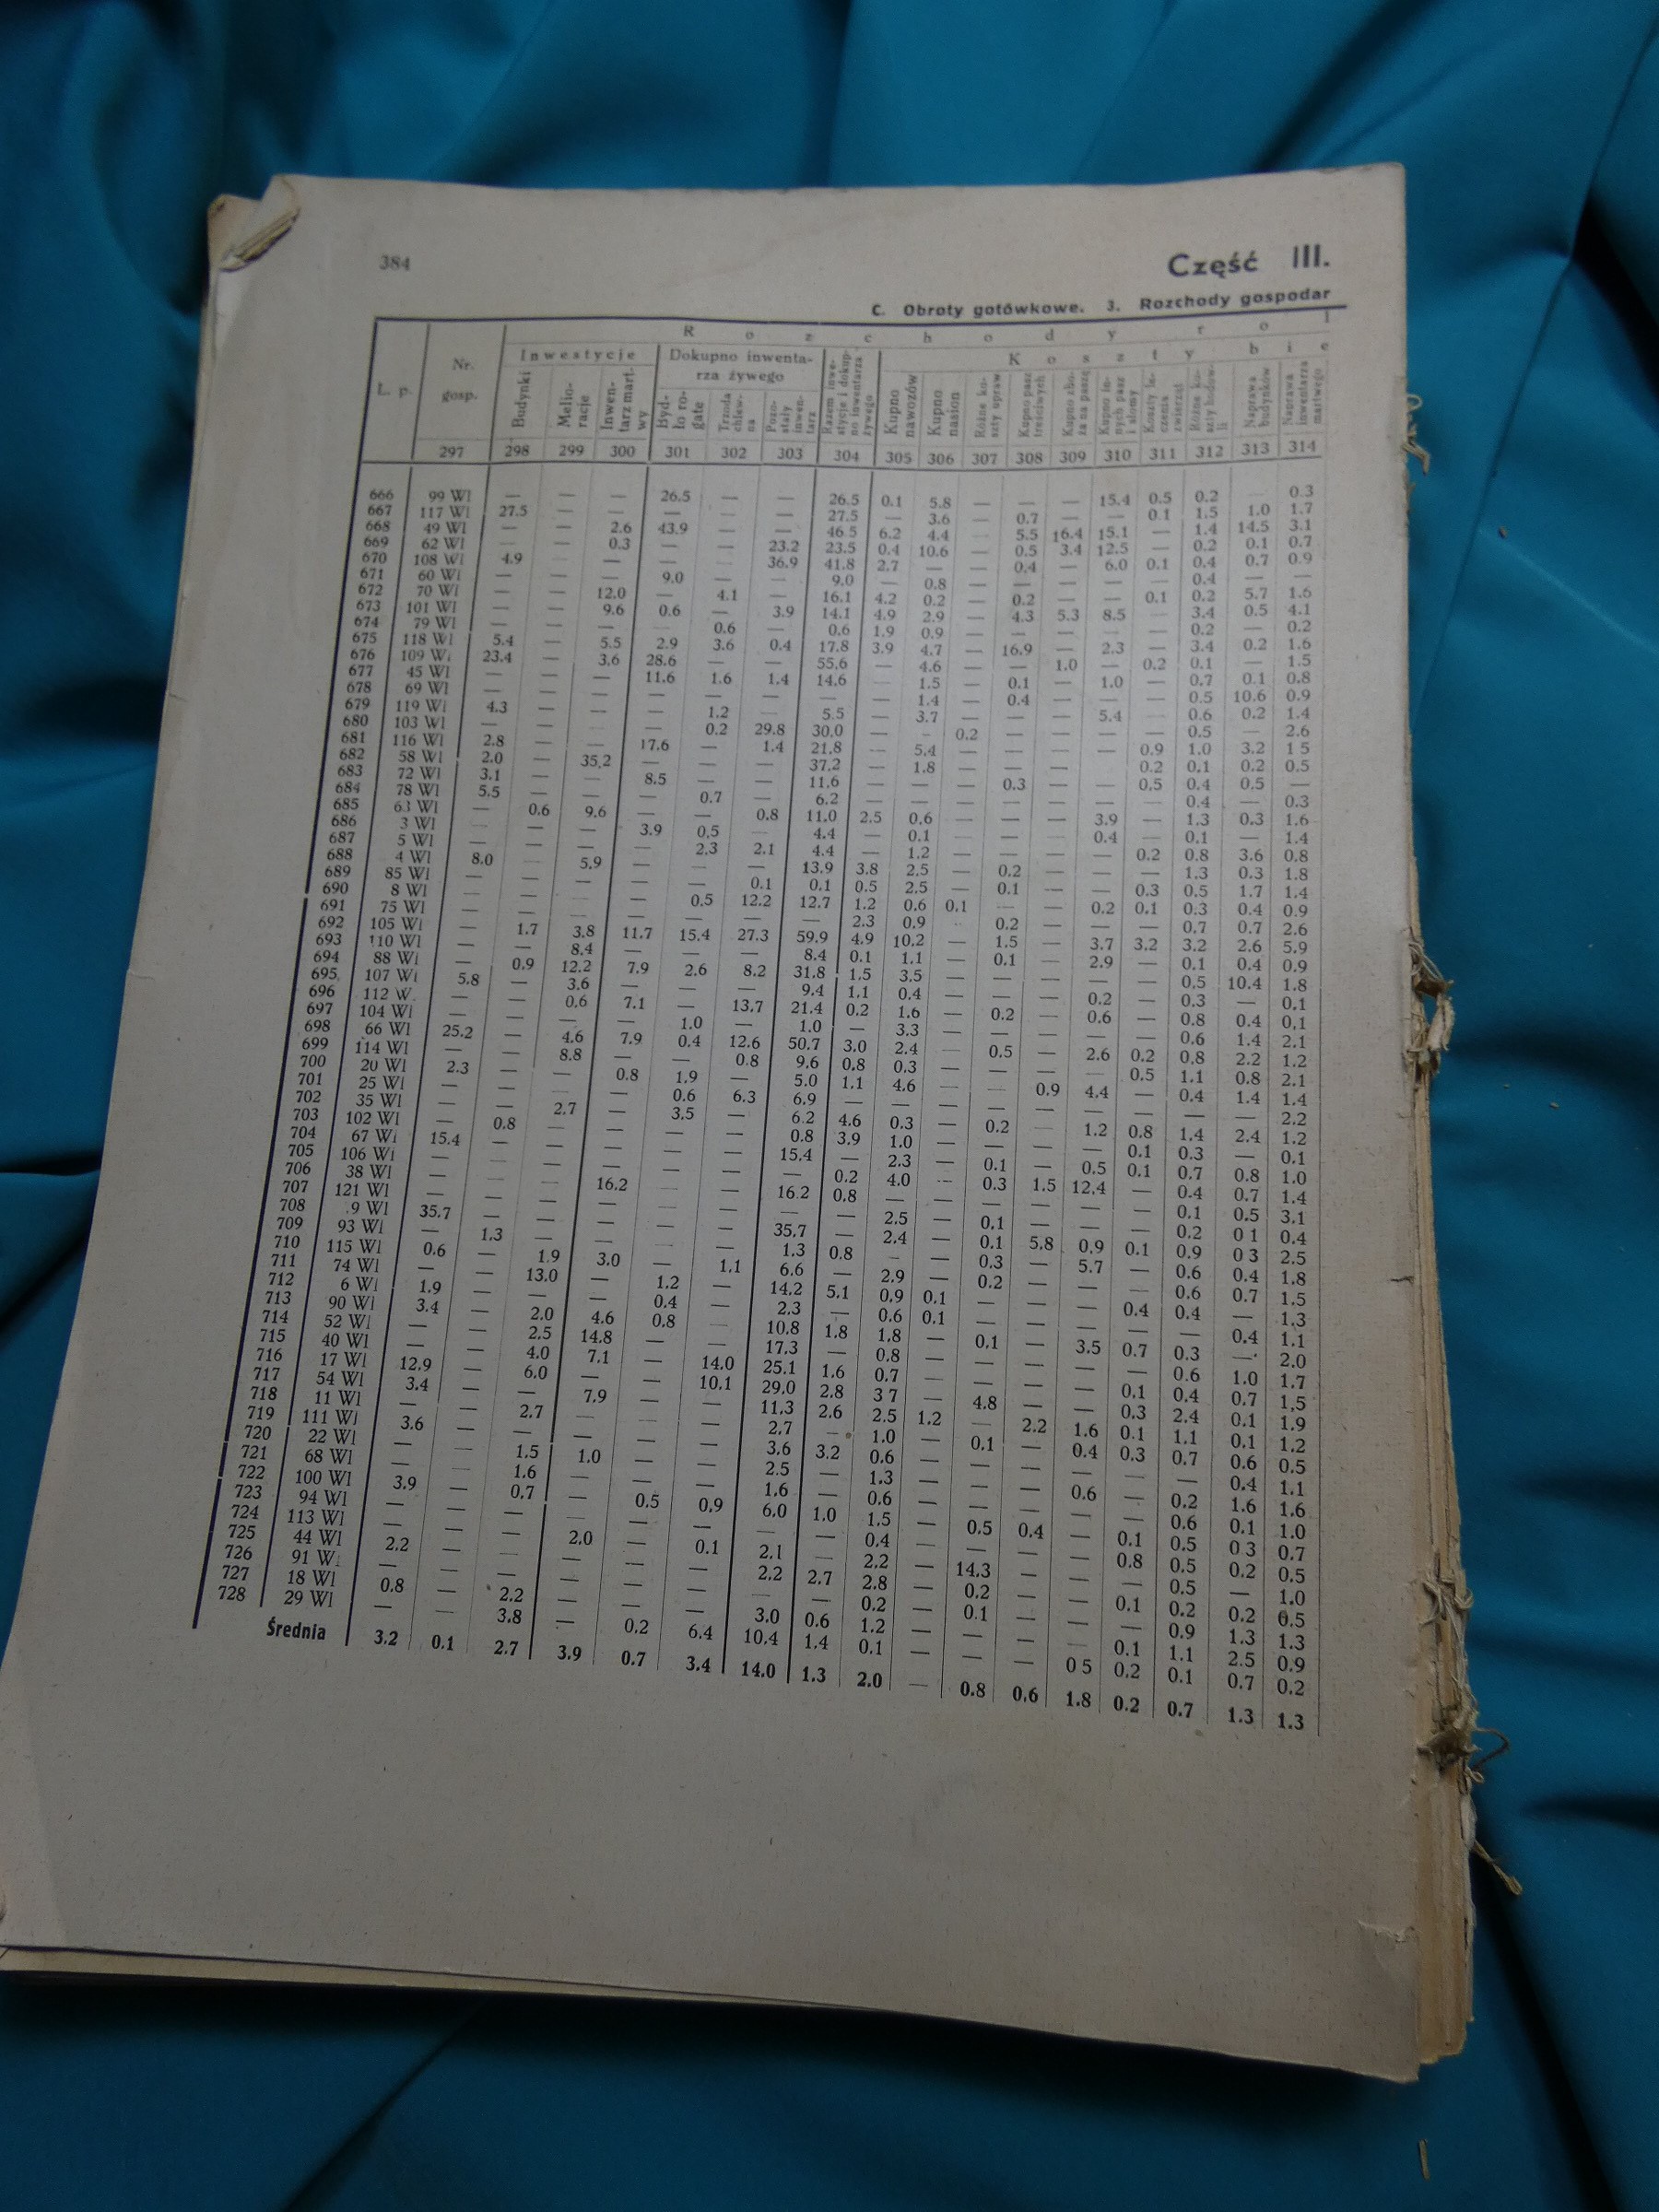 384
Część III.
C. Obroty gotówkowe. 3. Rozchody gospodar
R o z c h o d y r o l
Inwestycje
Dokupno inwenta-
rza żywego
K o s z t y b i e
L. p.
Nr.
gosp.
Budynki
Melio-
racje
Inwen-
tarz mart-
wy
Byd-
ło ro-
gate
Trzoda
chlew-
na
Pozo-
stały
inwen-
tarz
Razem inwe-
stycje i dokup-
no inwentarza
żywego
Kupno
nawozów
Kupno
nasion
Różne ko-
szty upraw
Kupno pasz
treściwych
Kupno zbo-
ża na paszę
Kupno in-
nych pasz
i słomy
Koszty le-
czenia
zwierząt
Różne ko-
szty hodow-
li
Naprawa
budynków
Naprawa
inwentarza
martwego
297 298 299 300 301 302 303 304 305 306 307 308 309 310 311 312 313 314
666 99 Wl — — — 26.5 — — 26.5 0.1 5.8 — — — 15.4 0.5 0.2 — 0.3
667 117 Wl 27.5 — — — — — 27.5 — 3.6 — 0.7 — — 0.1 1.5 1.0 1.7
668 49 Wl — — 2.6 43.9 — — 46.5 6.2 4.4 — 5.5 16.4 15.1 — 1.4 14.5 3.1
669 62 Wl — — 0.3 — — 23.2 23.5 0.4 10.6 — 0.5 3.4 12.5 — 0.2 0.1 0.7
670 108 Wl 4.9 — — — — 36.9 41.8 2.7 — — 0.4 — 6.0 0.1 0.4 0.7 0.9
671 60 Wl — — — 9.0 — — 9.0 — 0.8 — — — — — 0.4 — —
672 70 Wl — — 12.0 — 4.1 — 16.1 4.2 0.2 — 0.2 — — 0.1 0.2 5.7 1.6
673 101 Wl — — 9.6 0.6 — 3.9 14.1 4.9 2.9 — 4.3 5.3 8.5 — 3.4 0.5 4.1
674 79 Wl — — — — 0.6 — 0.6 1.9 0.9 — — — — — 0.2 — 0.2
675 118 Wl 5.4 — 5.5 2.9 3.6 0.4 17.8 3.9 4.7 — 16.9 — 2.3 — 3.4 0.2 1.6
676 109 Wl 23.4 — 3.6 28.6 — — 55.6 — 4.6 — — 1.0 — 0.2 0.1 — 1.5
677 45 Wl — — — 11.6 1.6 1.4 14.6 — 1.5 — 0.1 — 1.0 — 0.7 0.1 0.8
678 69 Wl — — — — — — — — 1.4 — 0.4 — — — 0.5 10.6 0.9
679 119 Wl 4.3 — — — 1.2 — 5.5 — 3.7 — — — 5.4 — 0.6 0.2 1.4
680 103 Wl — — — — 0.2 29.8 30.0 — — 0.2 — — — — 0.5 — 2.6
681 116 Wl 2.8 — — 17.6 — 1.4 21.8 — 5.4 — — — — 0.9 1.0 3.2 1 5
682 58 Wl 2.0 — 35.2 — — — 37.2 — 1.8 — — — — 0.2 0.1 0.2 0.5
683 72 Wl 3.1 — — 8.5 — — 11.6 — — — 0.3 — — 0.5 0.4 0.5 —
684 78 Wl 5.5 — — — 0.7 — 6.2 — — — — — — — 0.4 — 0.3
685 63 Wl — 0.6 9.6 — — 0.8 11.0 2.5 0.6 — — — 3.9 — 1.3 0.3 1.6
686 3 Wl — — — 3.9 0.5 — 4.4 — 0.1 — — — 0.4 — 0.1 — 1.4
687 5 Wl — — — — 2.3 2.1 4.4 — 1.2 — — — — 0.2 0.8 3.6 0.8
688 4 Wl 8.0 — 5.9 — — — 13.9 3.8 2.5 — 0.2 — — — 1.3 0.3 1.8
689 85 Wl — — — — — 0.1 0.1 0.5 2.5 — 0.1 — — 0.3 0.5 1.7 1.4
690 8 Wl — — — — 0.5 12.2 12.7 1.2 0.6 0.1 — — 0.2 0.1 0.3 0.4 0.9
691 75 Wl — — — — — — — 2.3 0.9 — 0.2 — — — 0.7 0.7 2.6
692 105 Wl — 1.7 3.8 11.7 15.4 27.3 59.9 4.9 10.2 — 1.5 — 3.7 3.2 3.2 2.6 5.9
693 110 Wl — — 8.4 — — — 8.4 0.1 1.1 — 0.1 — 2.9 — 0.1 0.4 0.9
694 88 Wl — 0.9 12.2 7.9 2.6 8.2 31.8 1.5 3.5 — — — — — 0.5 10.4 1.8
695 107 Wl 5.8 — 3.6 — — — 9.4 1.1 0.4 — — — 0.2 — 0.3 — 0.1
696 112 W. — — 0.6 7.1 — 13.7 21.4 0.2 1.6 — 0.2 — 0.6 — 0.8 0.4 0.1
697 104 Wl — — — — 1.0 — 1.0 — 3.3 — — — — — 0.6 1.4 2.1
698 66 Wl 25.2 — 4.6 7.9 0.4 12.6 50.7 3.0 2.4 — 0.5 — 2.6 0.2 0.8 2.2 1.2
699 114 Wl — — 8.8 — — 0.8 9.6 0.8 0.3 — — — — 0.5 1.1 0.8 2.1
700 20 Wl 2.3 — — 0.8 1.9 — 5.0 1.1 4.6 — — 0.9 4.4 — 0.4 1.4 1.4
701 25 Wl — — — — 0.6 6.3 6.9 — — — — — — — — — 2.2
702 35 Wl — — 2.7 — 3.5 — 6.2 4.6 0.3 — 0.2 — 1.2 0.8 1.4 2.4 1.2
703 102 Wl — 0.8 — — — — 0.8 3.9 1.0 — — — — 0.1 0.3 — 0.1
704 67 Wl 15.4 — — — — — 15.4 — 2.3 — 0.1 — 0.5 0.1 0.7 0.8 1.0
705 106 Wl — — — — — — — 0.2 4.0 — 0.3 1.5 12.4 — 0.4 0.7 1.4
706 38 Wl — — — 16.2 — — 16.2 0.8 — — — — — — 0.1 0.5 3.1
707 121 Wl — — — — — — — — 2.5 — 0.1 — — — 0.2 0 1 0.4
708 9 Wl 35.7 — — — — — 35.7 — 2.4 — 0.1 5.8 0.9 0.1 0.9 0 3 2.5
709 93 Wl — 1.3 — — — — 1.3 0.8 — — 0.3 — 5.7 — 0.6 0.4 1.8
710 115 Wl 0.6 — 1.9 3.0 — 1.1 6.6 — 2.9 — 0.2 — — — 0.6 0.7 1.5
711 74 Wl — — 13.0 — 1.2 — 14.2 5.1 0.9 0.1 — — — 0.4 0.4 — 1.3
712 6 Wl 1.9 — — — 0.4 — 2.3 — 0.6 0.1 — — — — — 0.4 1.1
713 90 Wl 3.4 — 2.0 4.6 0.8 — 10.8 1.8 1.8 — 0.1 — 3.5 0.7 0.3 — 2.0
714 52 Wl — — 2.5 14.8 — — 17.3 — 0.8 — — — — — 0.6 1.0 1.7
715 40 Wl — — 4.0 7.1 — 14.0 25.1 1.6 0.7 — — — — 0.1 0.4 0.7 1.5
716 17 Wl 12.9 — 6.0 — — 10.1 29.0 2.8 3 7 — 4.8 — — 0.3 2.4 0.1 1.9
717 54 Wl 3.4 — — 7.9 — — 11.3 2.6 2.5 1.2 — 2.2 1.6 0.1 1.1 0.1 1.2
718 11 Wl — — 2.7 — — — 2.7 — 1.0 — 0.1 — 0.4 0.3 0.7 0.6 0.5
719 111 Wl 3.6 — — — — — 3.6 3.2 0.6 — — — — — — 0.4 1.1
720 22 Wl — — 1.5 1.0 — — 2.5 — 1.3 — — — 0.6 — 0.2 1.6 1.6
721 68 Wl — — 1.6 — — — 1.6 — 0.6 — — — — — 0.6 0.1 1.0
722 100 Wl 3.9 — 0.7 — 0.5 0.9 6.0 1.0 1.5 — 0.5 0.4 — 0.1 0.5 0.3 0.7
723 94 Wl — — — — — — — — 0.4 — — — — 0.8 0.5 0.2 0.5
724 113 Wl — — — 2.0 — 0.1 2.1 — 2.2 — 14.3 — — — 0.5 — 1.0
725 44 Wl 2.2 — — — — — 2.2 2.7 2.8 — 0.2 — — 0.1 0.2 0.2 0.5
726 91 Wl — — — — — — — — 0.2 — 0.1 — — — 0.9 1.3 1.3
727 18 Wl 0.8 — 2.2 — — — 3.0 0.6 1.2 — — — — 0.1 1.1 2.5 0.9
728 29 Wl — — 3.8 — 0.2 6.4 10.4 1.4 0.1 — — — 0 5 0.2 0.1 0.7 0.2
Średnia 3.2 0.1 2.7 3.9 0.7 3.4 14.0 1.3 2.0 — 0.8 0.6 1.8 0.2 0.7 1.3 1.3